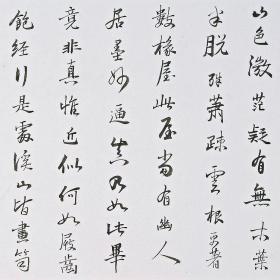 山色微茫疑有無木葉
半脫殊蕭疎雲根可著
數椽屋此屋當有幽人
居墨妙逼真乃如此畢
竟非真惟近似何如屐齒
飽經行是處溪山皆畫笥